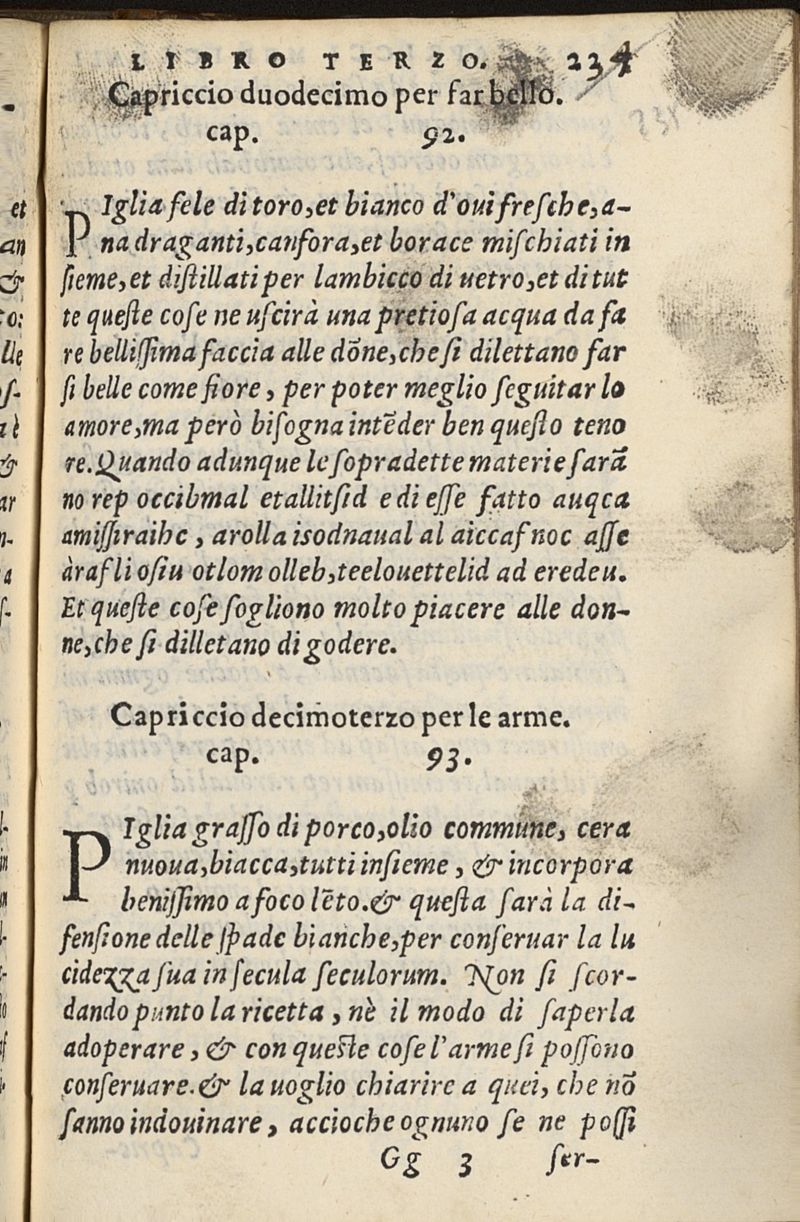 LIBRO TERZO. 234
Capriccio duodecimo per far bello.
cap. 92.
PIglia fele di toro, et bianco d'oui fresche, a-
na draganti, canfora, et borace mischiati in
sieme, et distillati per lambicco di uetro, et di tut
te queste cose ne uscirà una pretiosa acqua da fa
re bellissima faccia alle dõne, che si dilettano far
si belle come fiore, per poter meglio seguitar lo
amore, ma però bisogna intẽder ben questo teno
re. Quando adunque le sopradette materie sarã
no rep occibmal etallitsid e di esse fatto auqca
amissiraihc, arolla isodnaual al aiccaf noc asse
àraf li osiu otlom olleb, teelouettelid ad eredeu.
Et queste cose sogliono molto piacere alle don-
ne, che si dilletano di godere.
Capriccio decimoterzo per le arme.
cap. 93.
PIglia grasso di porco, olio commune, cera
nuoua, biacca, tutti insieme, & incorpora
benissimo a foco lẽto. & questa sarà la di-
fensione delle spade bianche, per conseruar la lu
cidezza sua in secula seculorum. Non si scor-
dando punto la ricetta, nè il modo di saperla
adoperare, & con queste cose l'arme si possono
conseruare. & la uoglio chiarire a quei, che nõ
sanno indouinare, accioche ognuno se ne possi
Gg 3 ser-